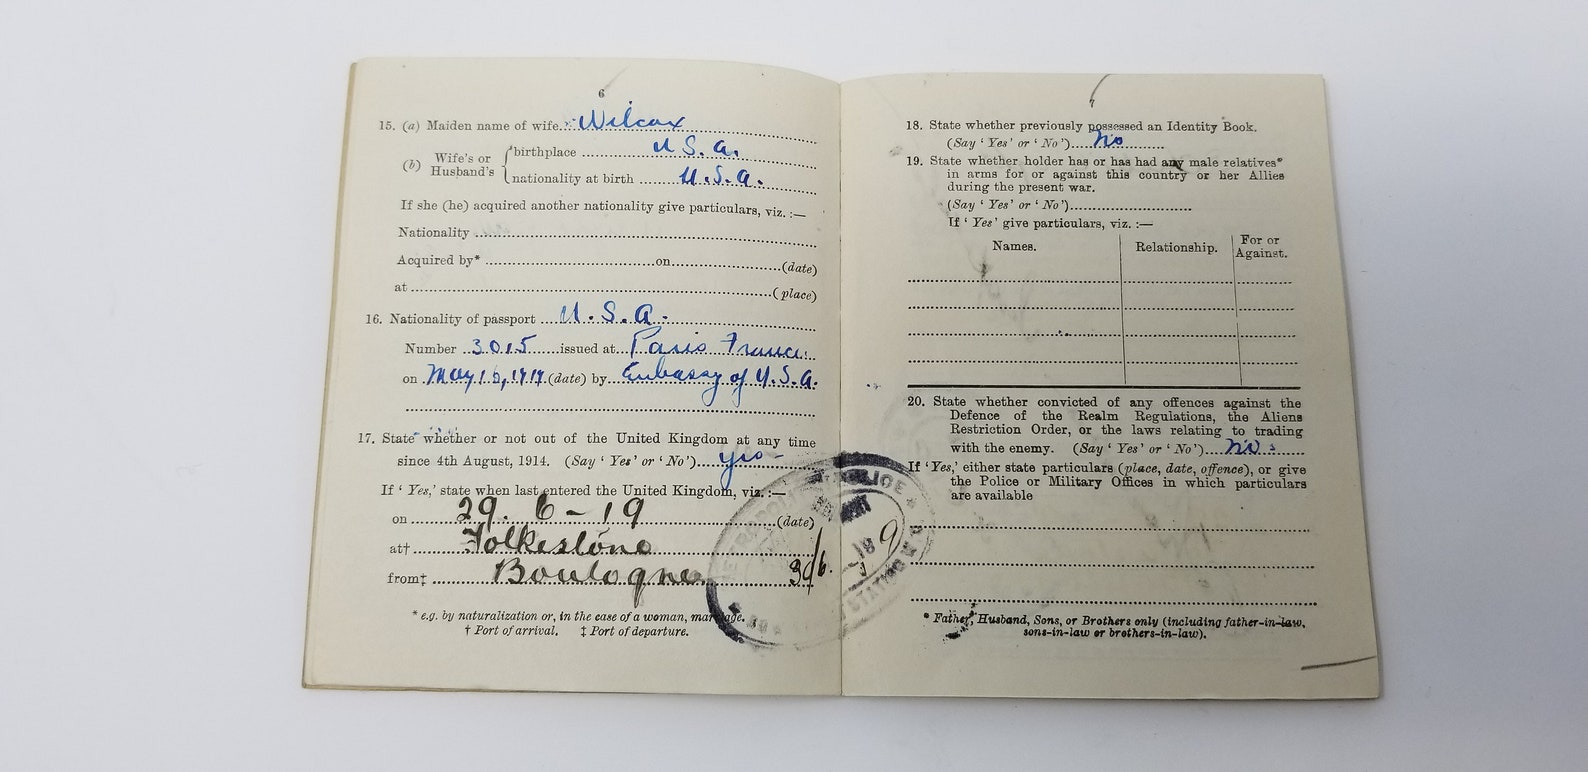 6
15. (a) Maiden name of wife. Wilcox
(b) Wife's or Husband's { birthplace U.S.A.
nationality at birth U.S.A.
If she (he) acquired another nationality give particulars, viz. :—
Nationality
Acquired by* on (date)
at (place)
16. Nationality of passport U.S.A.
Number 3015 issued at Paris France.
on May 16, 1919 (date) by Embassy of U.S.A.
17. State whether or not out of the United Kingdom at any time
since 4th August, 1914. (Say ‘ Yes’ or ‘ No’) yes -
If ‘ Yes,’ state when last entered the United Kingdom, viz. :—
on 29. 6 - 19 (date)
at† Folkestone
from‡ Boulogne
* e.g. by naturalization or, in the case of a woman, marriage.
† Port of arrival. ‡ Port of departure.
POLICE
7
18. State whether previously possessed an Identity Book.
(Say ‘ Yes’ or ‘ No’) No
19. State whether holder has or has had any male relatives*
in arms for or against this country or her Allies
during the present war.
(Say ‘ Yes’ or ‘ No’)
If ‘ Yes’ give particulars, viz. :—
Names. Relationship. For or Against.
20. State whether convicted of any offences against the
Defence of the Realm Regulations, the Aliens
Restriction Order, or the laws relating to trading
with the enemy. (Say ‘ Yes’ or ‘ No’) No.
If ‘Yes,’ either state particulars (place, date, offence), or give
the Police or Military Offices in which particulars
are available
* Father, Husband, Sons, or Brothers only (including father-in-law,
sons-in-law or brothers-in-law).